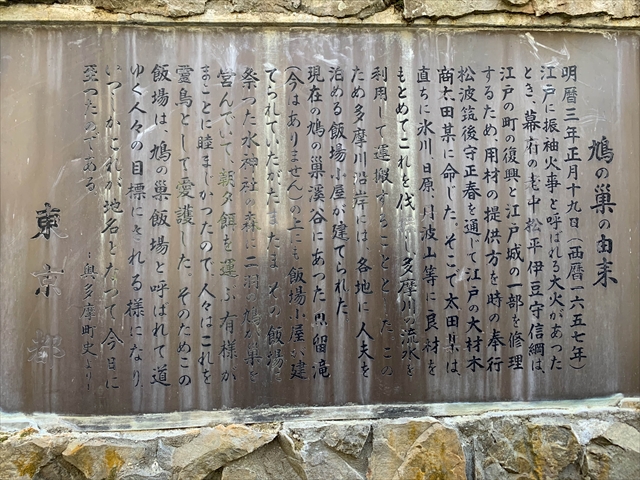 鳩の巣の由来
明暦三年正月十九日(西暦一六五七年)
江戸に振袖火事と呼ばれる大火があった
とき、幕府の老中松平伊豆守信綱は、
江戸の町の復興と江戸城の一部を修理
するため、用材の提供方を時の奉行
松波筑後守正春を通じて江戸の大材木
商太田某に命じた。そこで太田某は
直ちに氷川、日原、川波山等に良材を
もとめてこれを伐し多摩川の流水を
利用して運搬することとした。この
ため多摩川沿岸には、各地に人夫を
泊める飯場小屋が建てられた
現在の鳩の巣溪谷にあった留滝
(今はありません)の上にも飯場小屋が建
てられていたがたまたまその飯場に
祭った水神社の森に二羽の鳩が巣を
営んでいて、朝夕餌を運ぶ有様が
まことに睦ましかったので、人々はこれを
霊鳥として愛護した。そのためこの
飯場は、鳩の巣飯場と呼ばれて道
ゆく人々の目標にされる様になり、
いつしかこれが地名となって今日に
至ったのである。
:奥多摩町史より
東京都